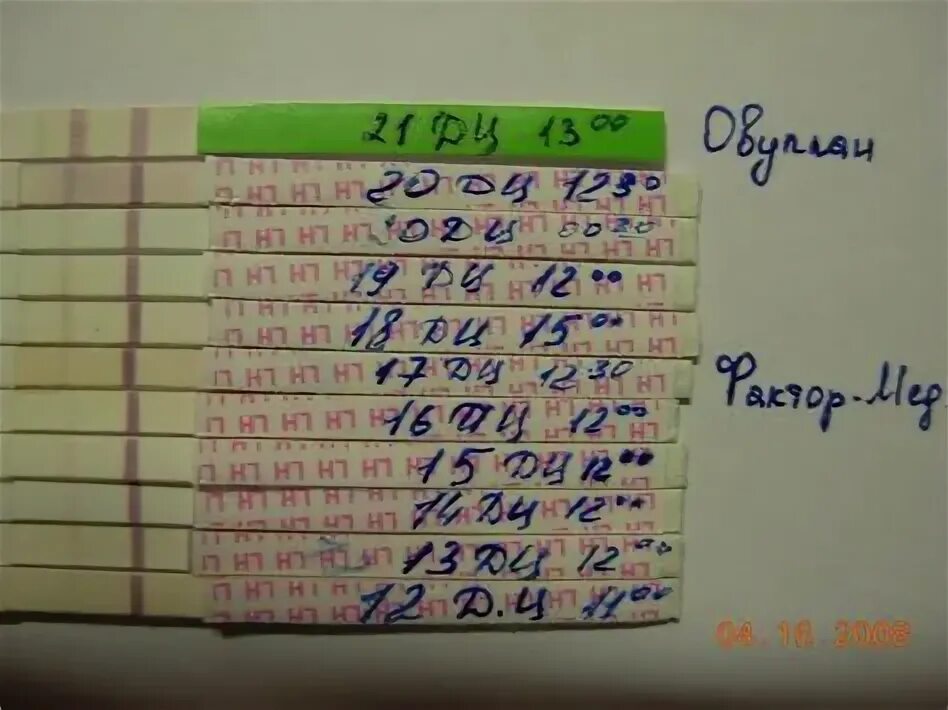 21 ДЦ 13 00 Овуплан
20 ДЦ 12 30
20 ДЦ 00 20
19 ДЦ 12 00
18 ДЦ 15 00
17 ДЦ 12 30 Фактор-Мед
16 ДЦ 12 00
15 ДЦ 12 00
14 ДЦ 12 00
13 ДЦ 12 00
12 Д.Ц 11 00